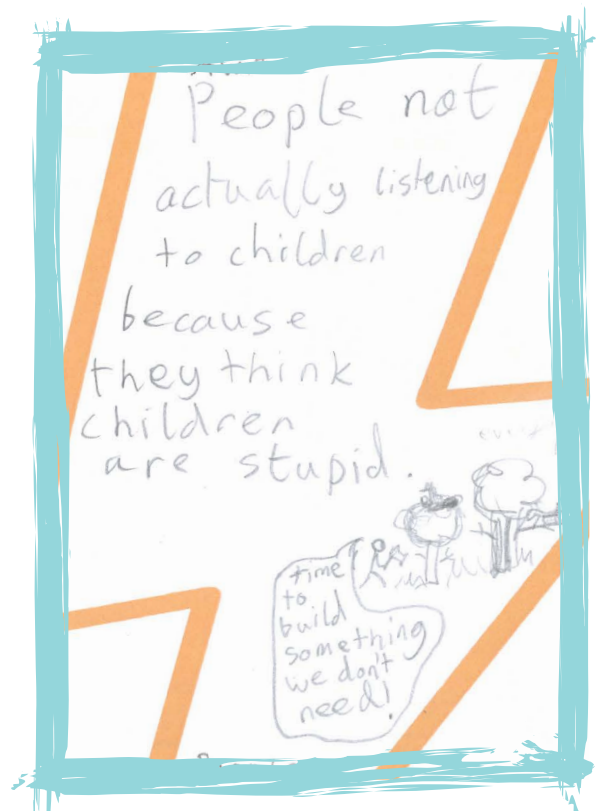 People not
actually listening
to children
because
they think
children
are stupid.
time
to
build
something
we don't
need!